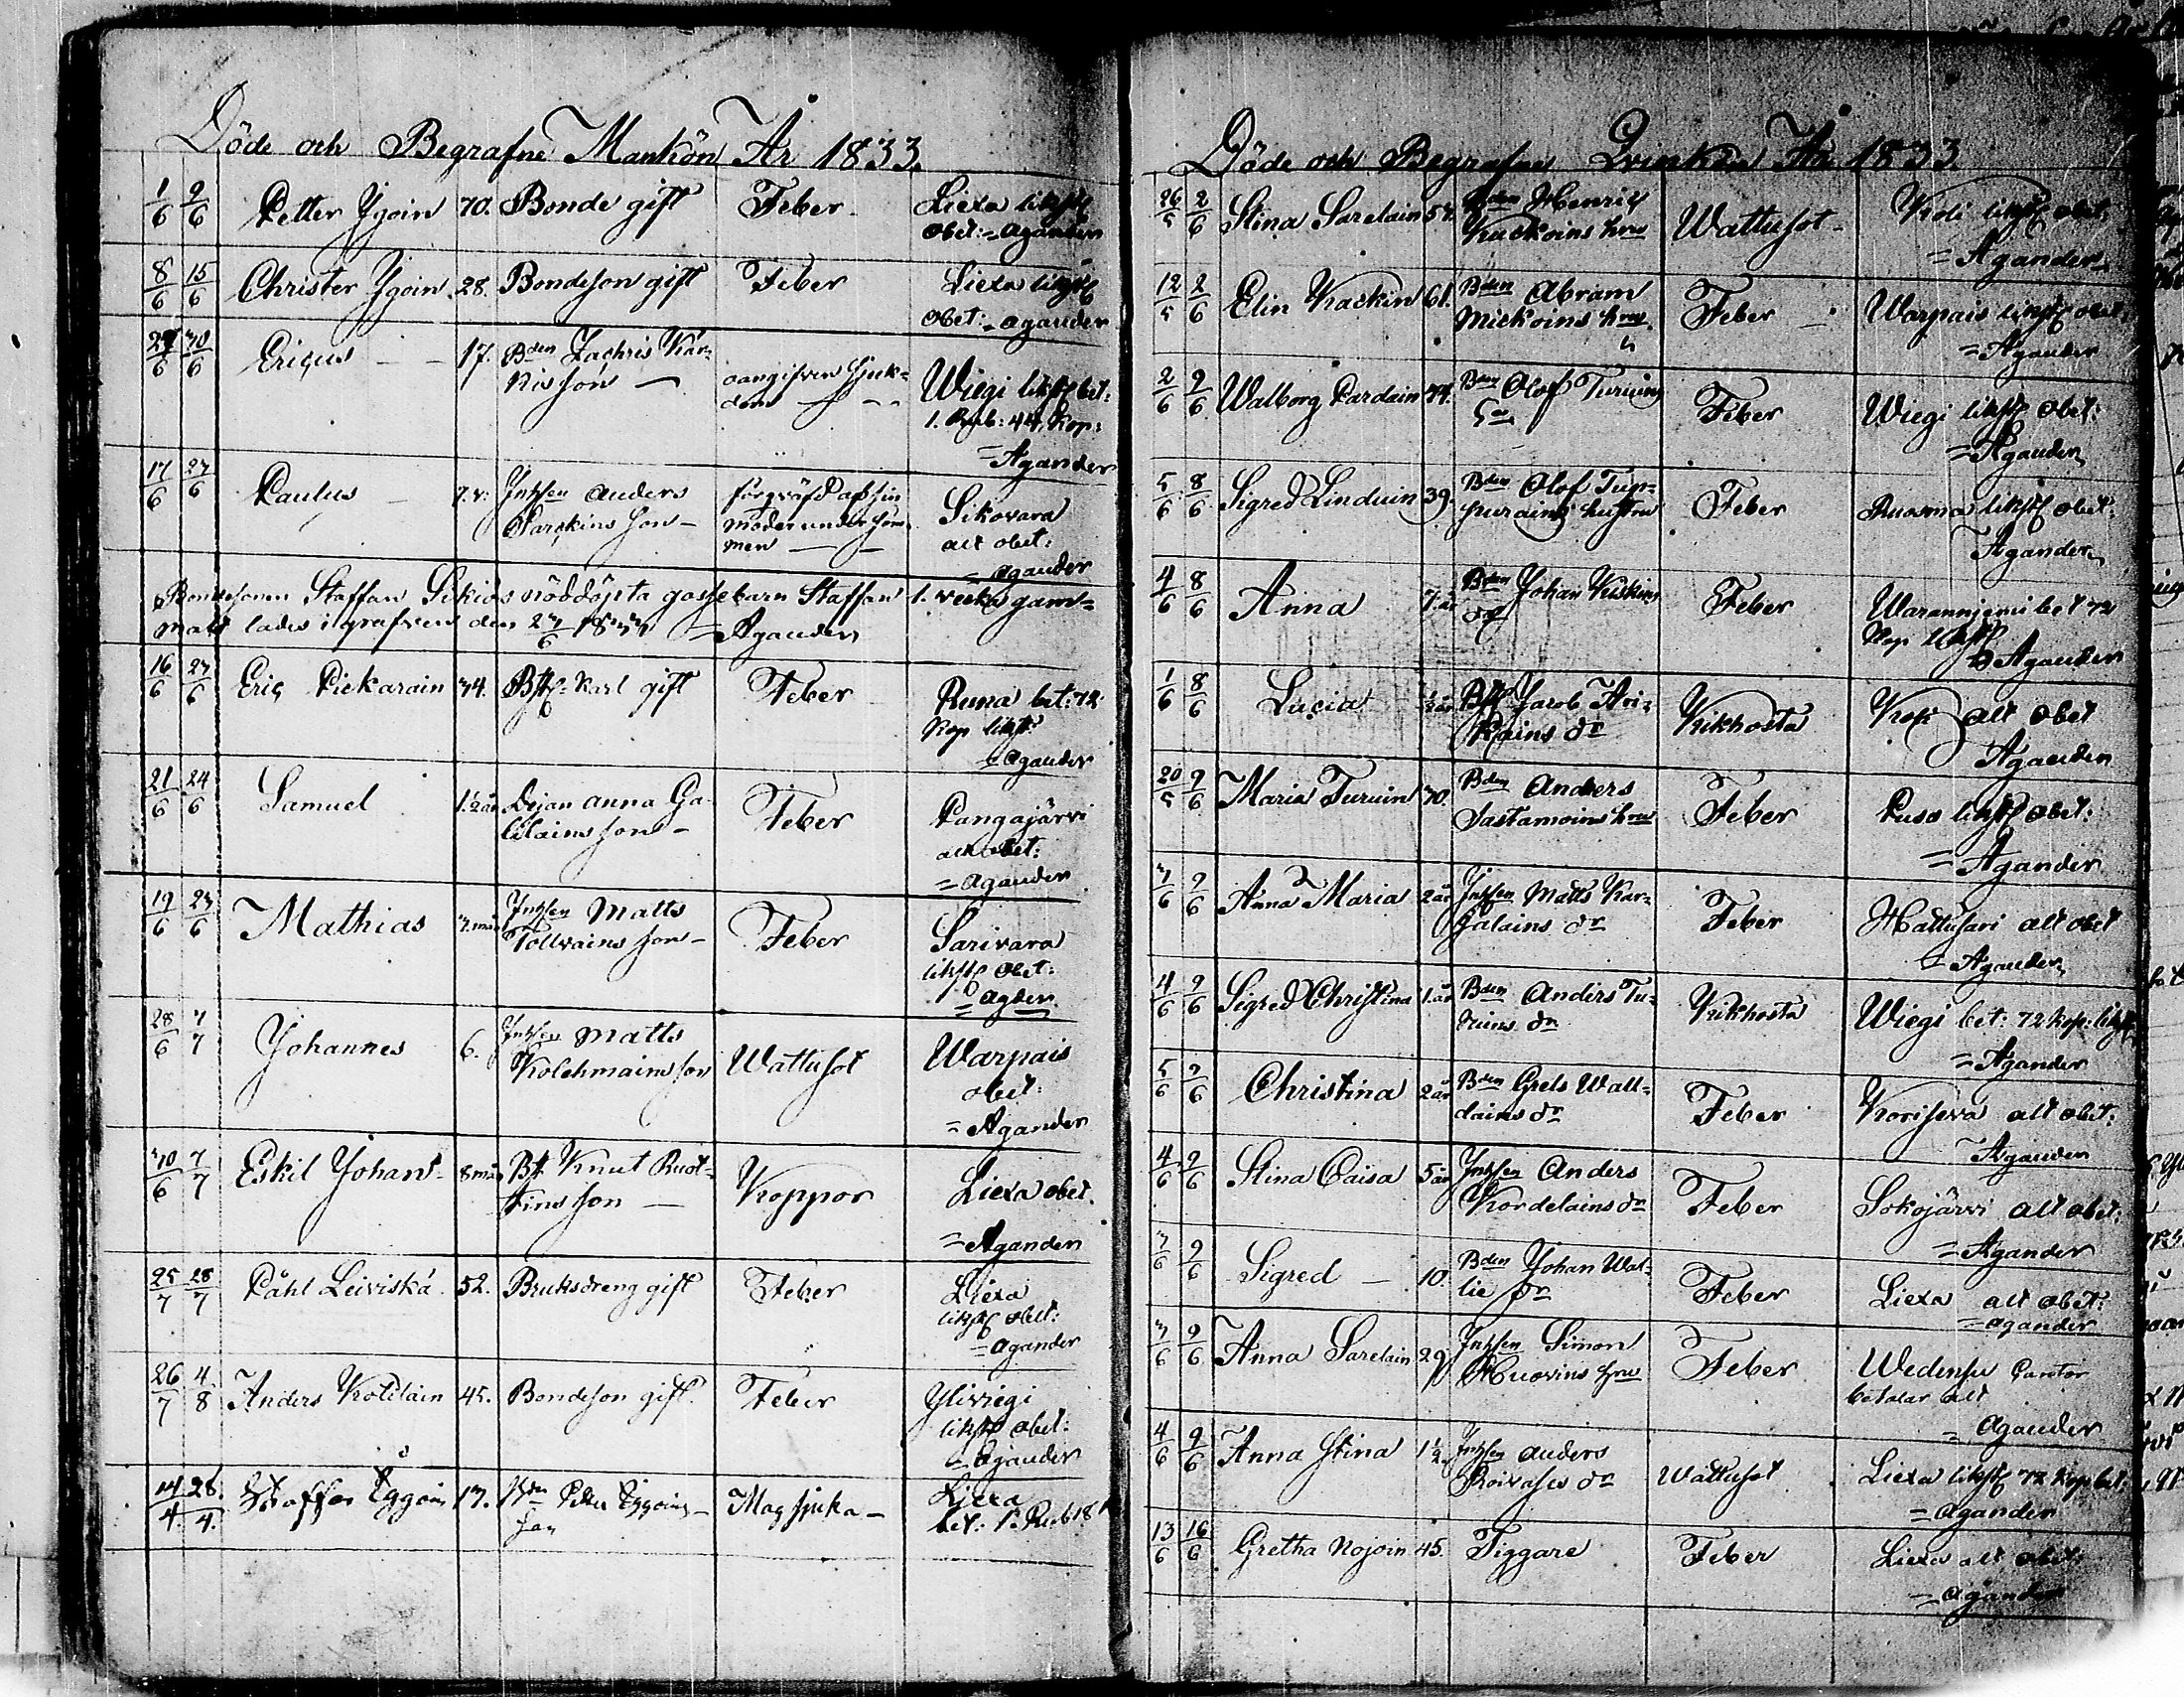 Döde och Begrafne Mankön År 1833.
1/6 9/6 Petter Ygoin 70. Bonde gift Feber Liexa likstl
obet: = Agander
8/6 15/6 Christer Ygoin 28. Bondeson gift Feber Liexa likstl
obet: = Agander
30/6 Ericus 17. Bden Zachris Kär-
kis son oangifven sjuk-
dom Wiegi likstl bet:
1. Rub: 44. Kop:
= Agander
17/6 27/6 Paulus Inhsen Anders
Sarkins son förqväfd af sin
moder under söm-
men Sikovara
alt obet:
= Agander
Bondesonen Staffan Sikios nöddöpta gossebarn Staffan 1. vecka gam-
malt lades i grafven den = Agander
16/6 27/6 Eric Pickarain 34. karl gift Feber Runa bet: 72
Kop likstl
= Agander
21/6 24/6 Samuel 1 1/2 år Anna Ga-
lilains son Feber Pangajärvi
alt obet:
= Agander
19/6 23/6 Mathias Inhsen Matts
Tolvains son Feber Sarivara
likstl obet:
= Agder
28/6 7/7 Johannes 6. Inhsen Matts
Kolehmains son Wattusot Warpais
obet:
= Agander
30/6 7/7 Eskil Johan 8 mån Knut Ruot-
tins son Koppor Liexa obet.
= Agander
25/7 28/7 Påhl Leiviskä 52. Bruksdreng gift Feber Liexa
likstl obet:
= Agander
26/7 4/8 Anders Kotilain 45. Bondeson gift Feber Yliviegi
likstl obet:
= Agander
14/4 28/4 Staffan Eggoin 13. Bden Petter Eggoins
son Magsjuka Liexa
bet: 1. Rub 18
Döde och Begrafne Qvinkön År 1833.
26/5 2/6 Stina Sarelain 57. Bden Henric
Kuckoins hru Wattusot Koli likstl obet:
= Agander
12/5 2/6 Elin Kackin 61. Bden Abram
Mickoins hru Feber Warpais likstl obet:
= Agander
2/6 9/6 Walborg Pardain Bden Olof Turuins
Feber Wiegi likstl obet:
= Agander
5/6 8/6 Sigred Linduin 39. Bden Olof Tup-
purains hustru Feber Ruosma likstl obet:
Agander
4/6 8/6 Anna 7. år Bden Johan Kiiskins
dr Feber bet 72
Kop likstl
= Agander
1/6 8/6 Lucia 1/2 år Jacob Ari-
kains dr Kikhosta Koli alt obet
Agander
20/5 9/6 Maria Turuin 70. Bden Anders
Sastamoins hru Feber Puso likstl obet:
= Agander
3/6 9/6 Anna Maria 2 år Inhsen Matts Kar-
jalains dr Feber Hattusari alt obet
= Agander
4/6 9/6 Sigred Christina 1. år Bden Anders Tu-
ruins dr Kikhosta Wiegi bet: 72 kop: likstl
= Agander
5/6 9/6 Christina 2 år Bden Grels Wall-
dains dr Feber Koriseva alt obet:
Agander
4/6 9/6 Stina Caisa 5 år Inhsen Anders
Kordelains dr Feber Sokojärvi alt obet:
= Agander
3/6 9/6 Sigred 10. Bden Johan Wal-
lie dr Feber Liexa alt obet:
= Agander
3/6 9/6 Anna Sarelain 29 Inhsen Simon
Huovins hru Feber Wedensu Cantor
betalar alt
= Agander
4/6 9/6 Anna Stina 1 1/2 Inhsen Anders
Roivases dr Wattusot Liexa likstl 72 kop bet:
= Agander
13/6 16/6 Gretha Nojoin 45. Tiggare Feber Liexa alt obet:
= Agander